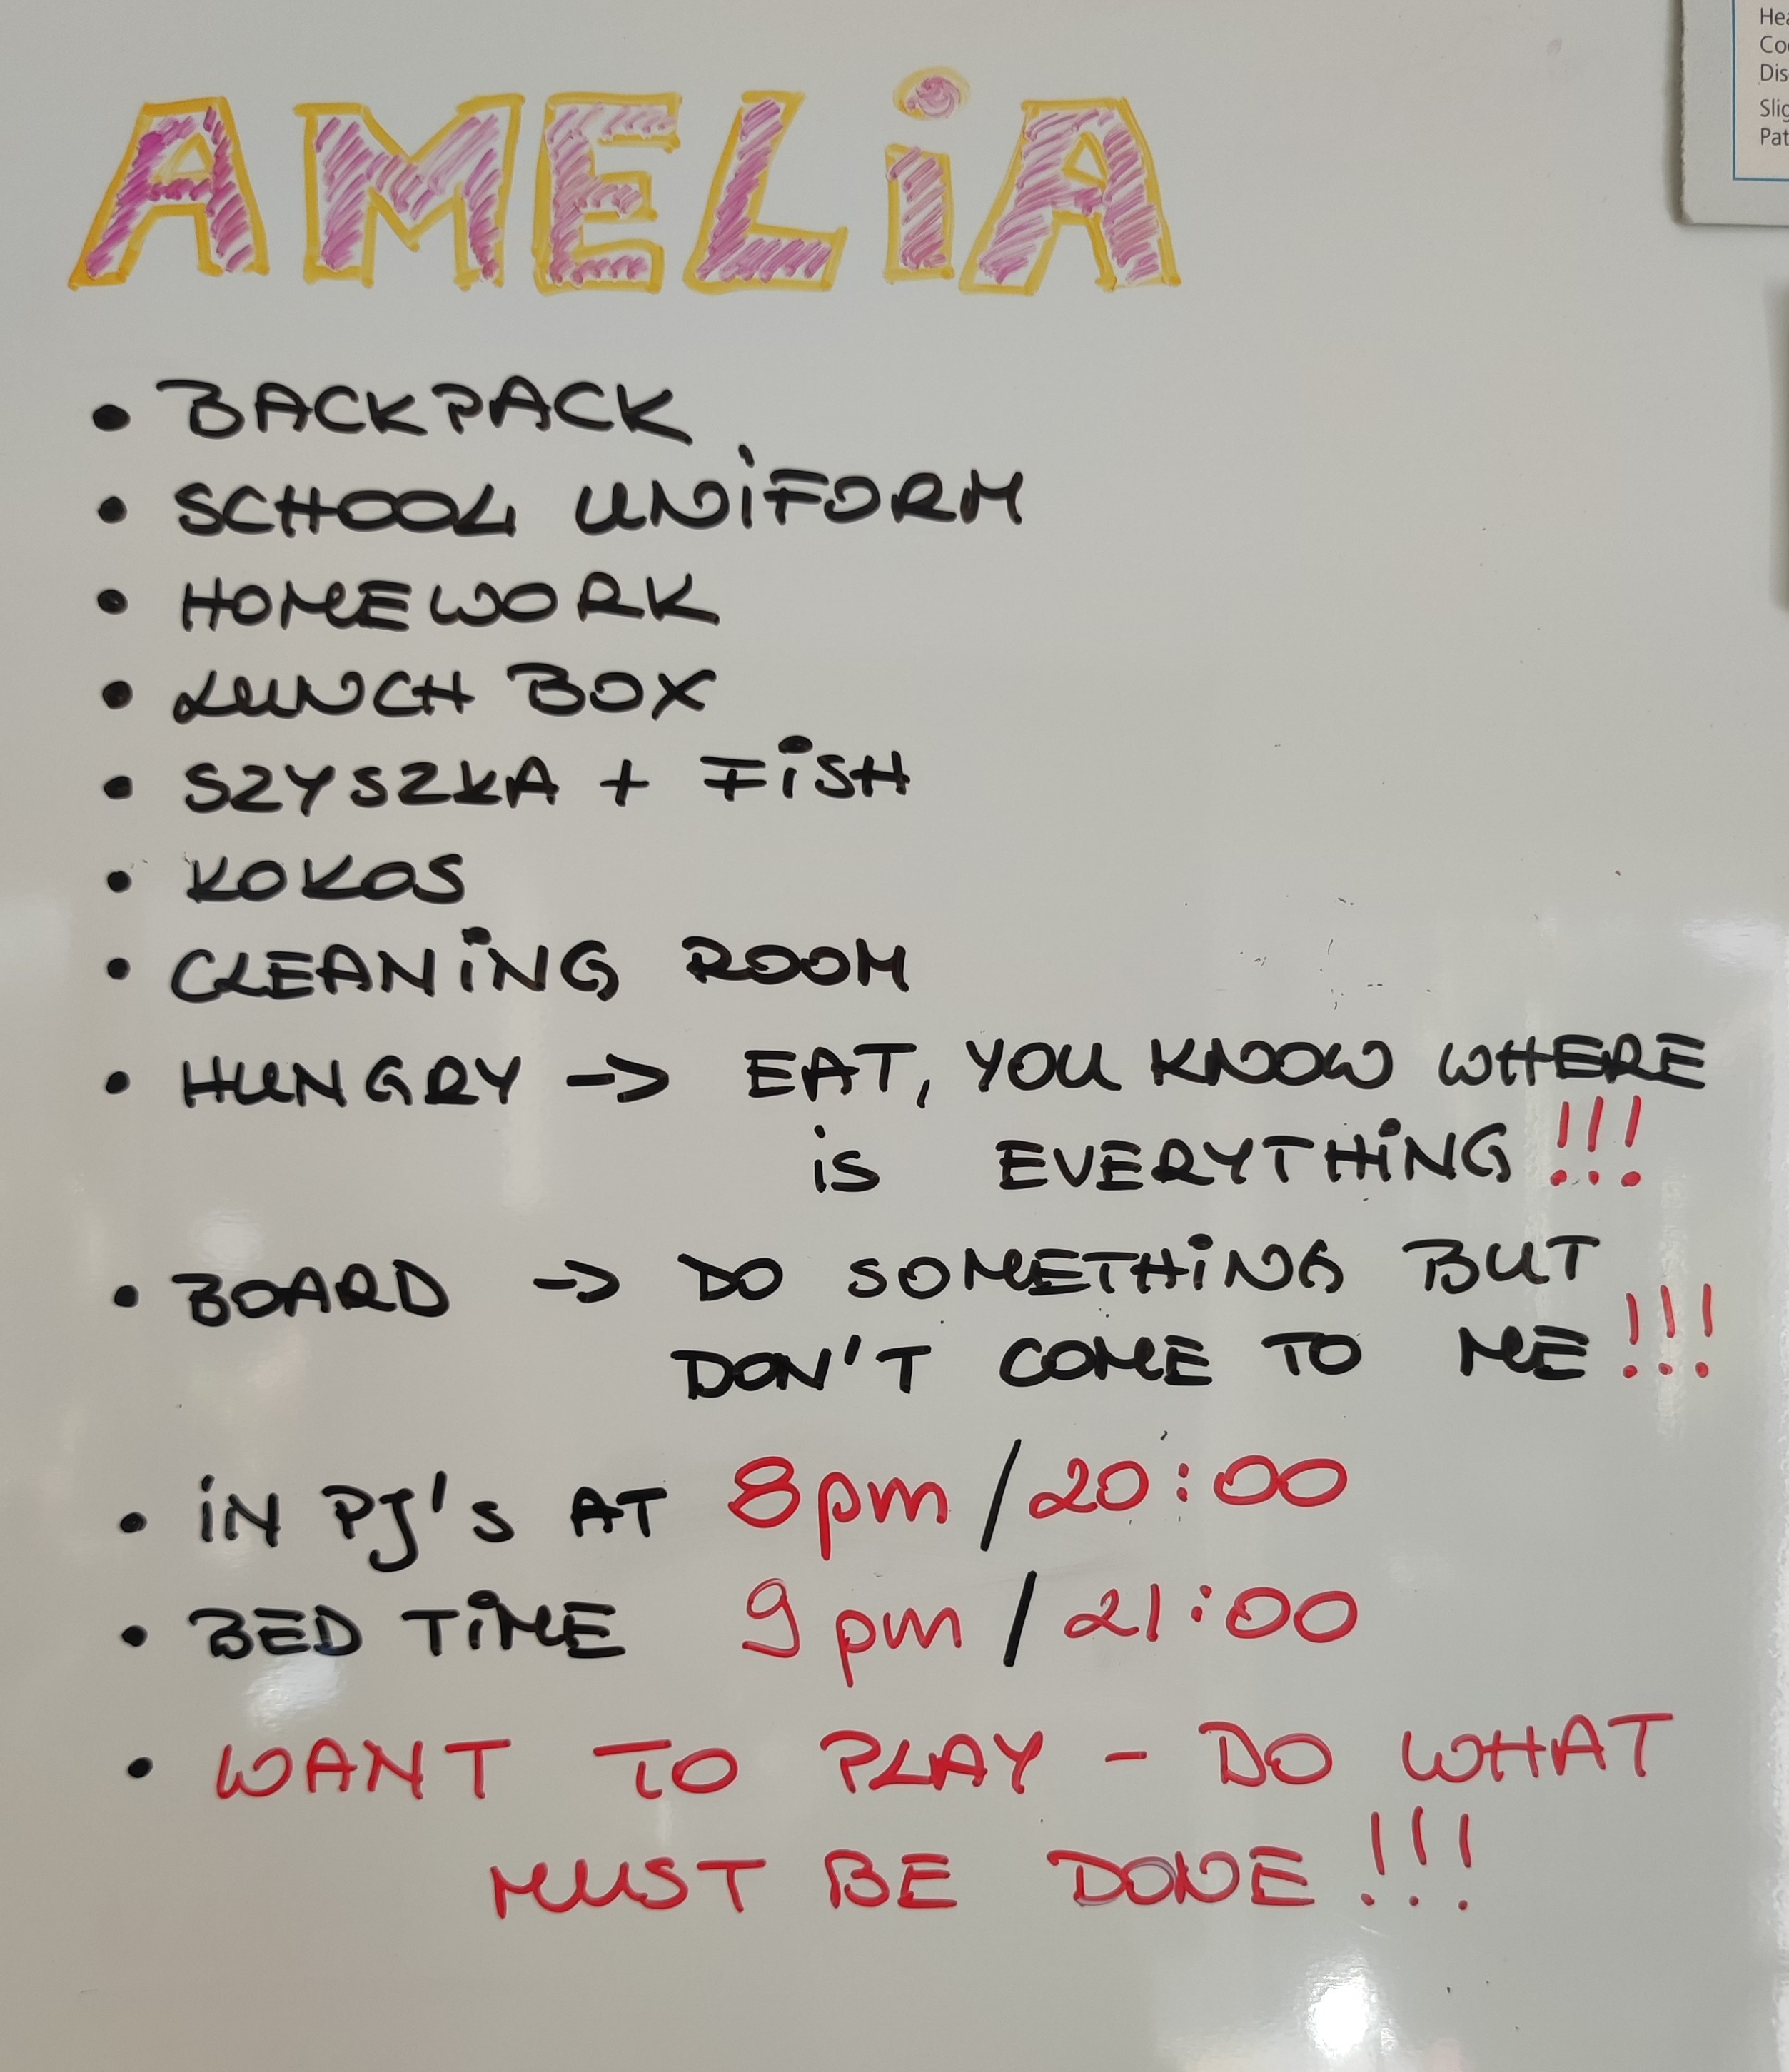 AMELiA
• BACKPACK
• SCHOOL UNiFORM
• HOMEWORK
• LUNCH BOX
• SZYSZKA + FiSH
• KOKOS
• CLEANiNG ROOM
• HUNGRY -> EAT, YOU KNOW WHERE
iS EVERYTHiNG!!!
• BOARD -> DO SOMETHiNG BUT
DON'T COME TO ME!!!
• iN PJ's AT 8pm/20:00
• BED TiME 9pm/21:00
• WANT TO PLAY - DO WHAT
MUST BE DONE!!!